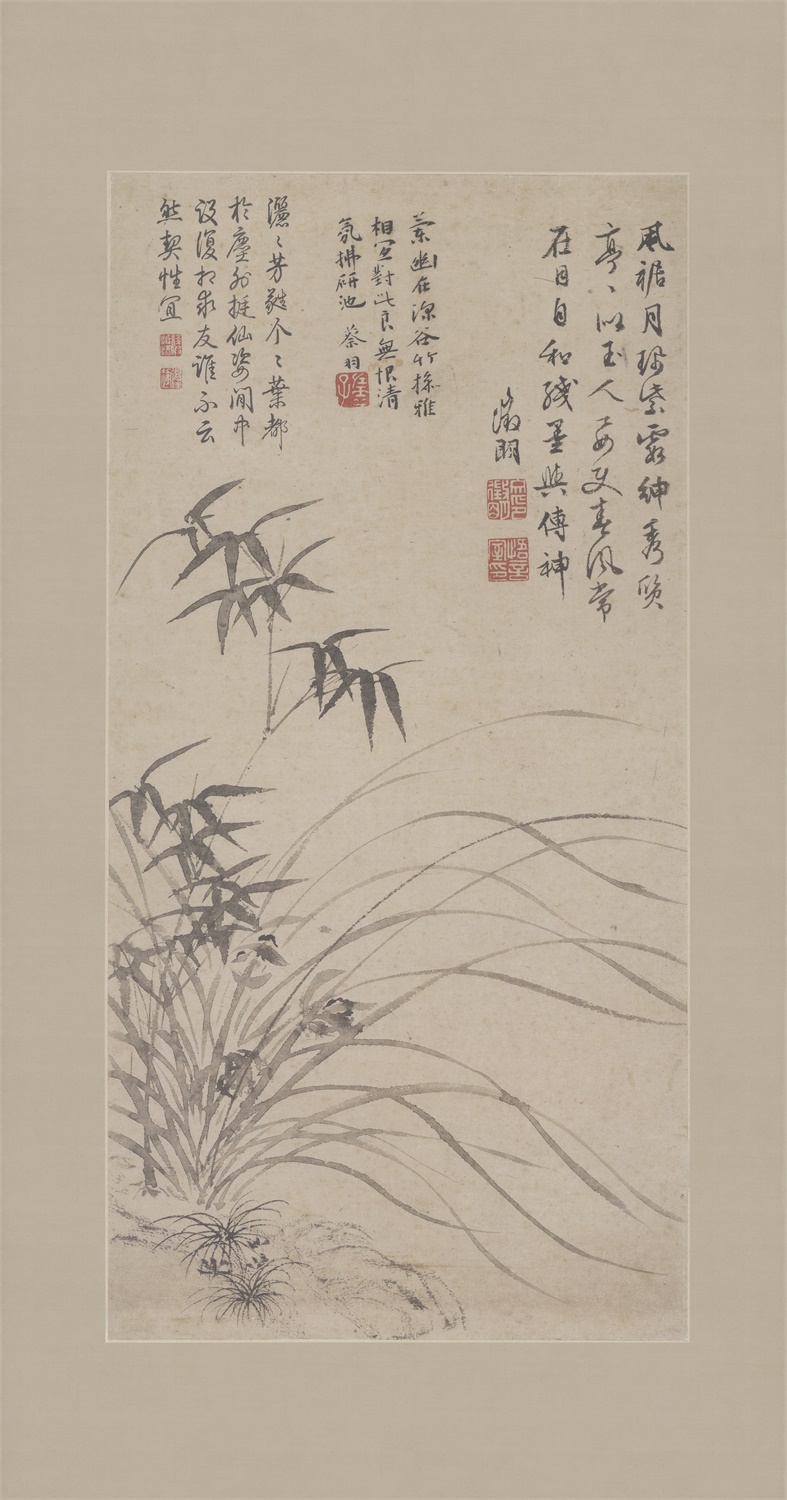 風裾月珮紫霞紳秀質
亭亭似玉人要使春風常
在目自和殘墨與傳神
徵明
蘭幽在深谷竹操雅
相宜對此良無恨清
氛拂研池 蔡羽
灑灑芳蕤个个葉都
於塵外挺仙姿閒中
設復相求友誰不云
然契性宜